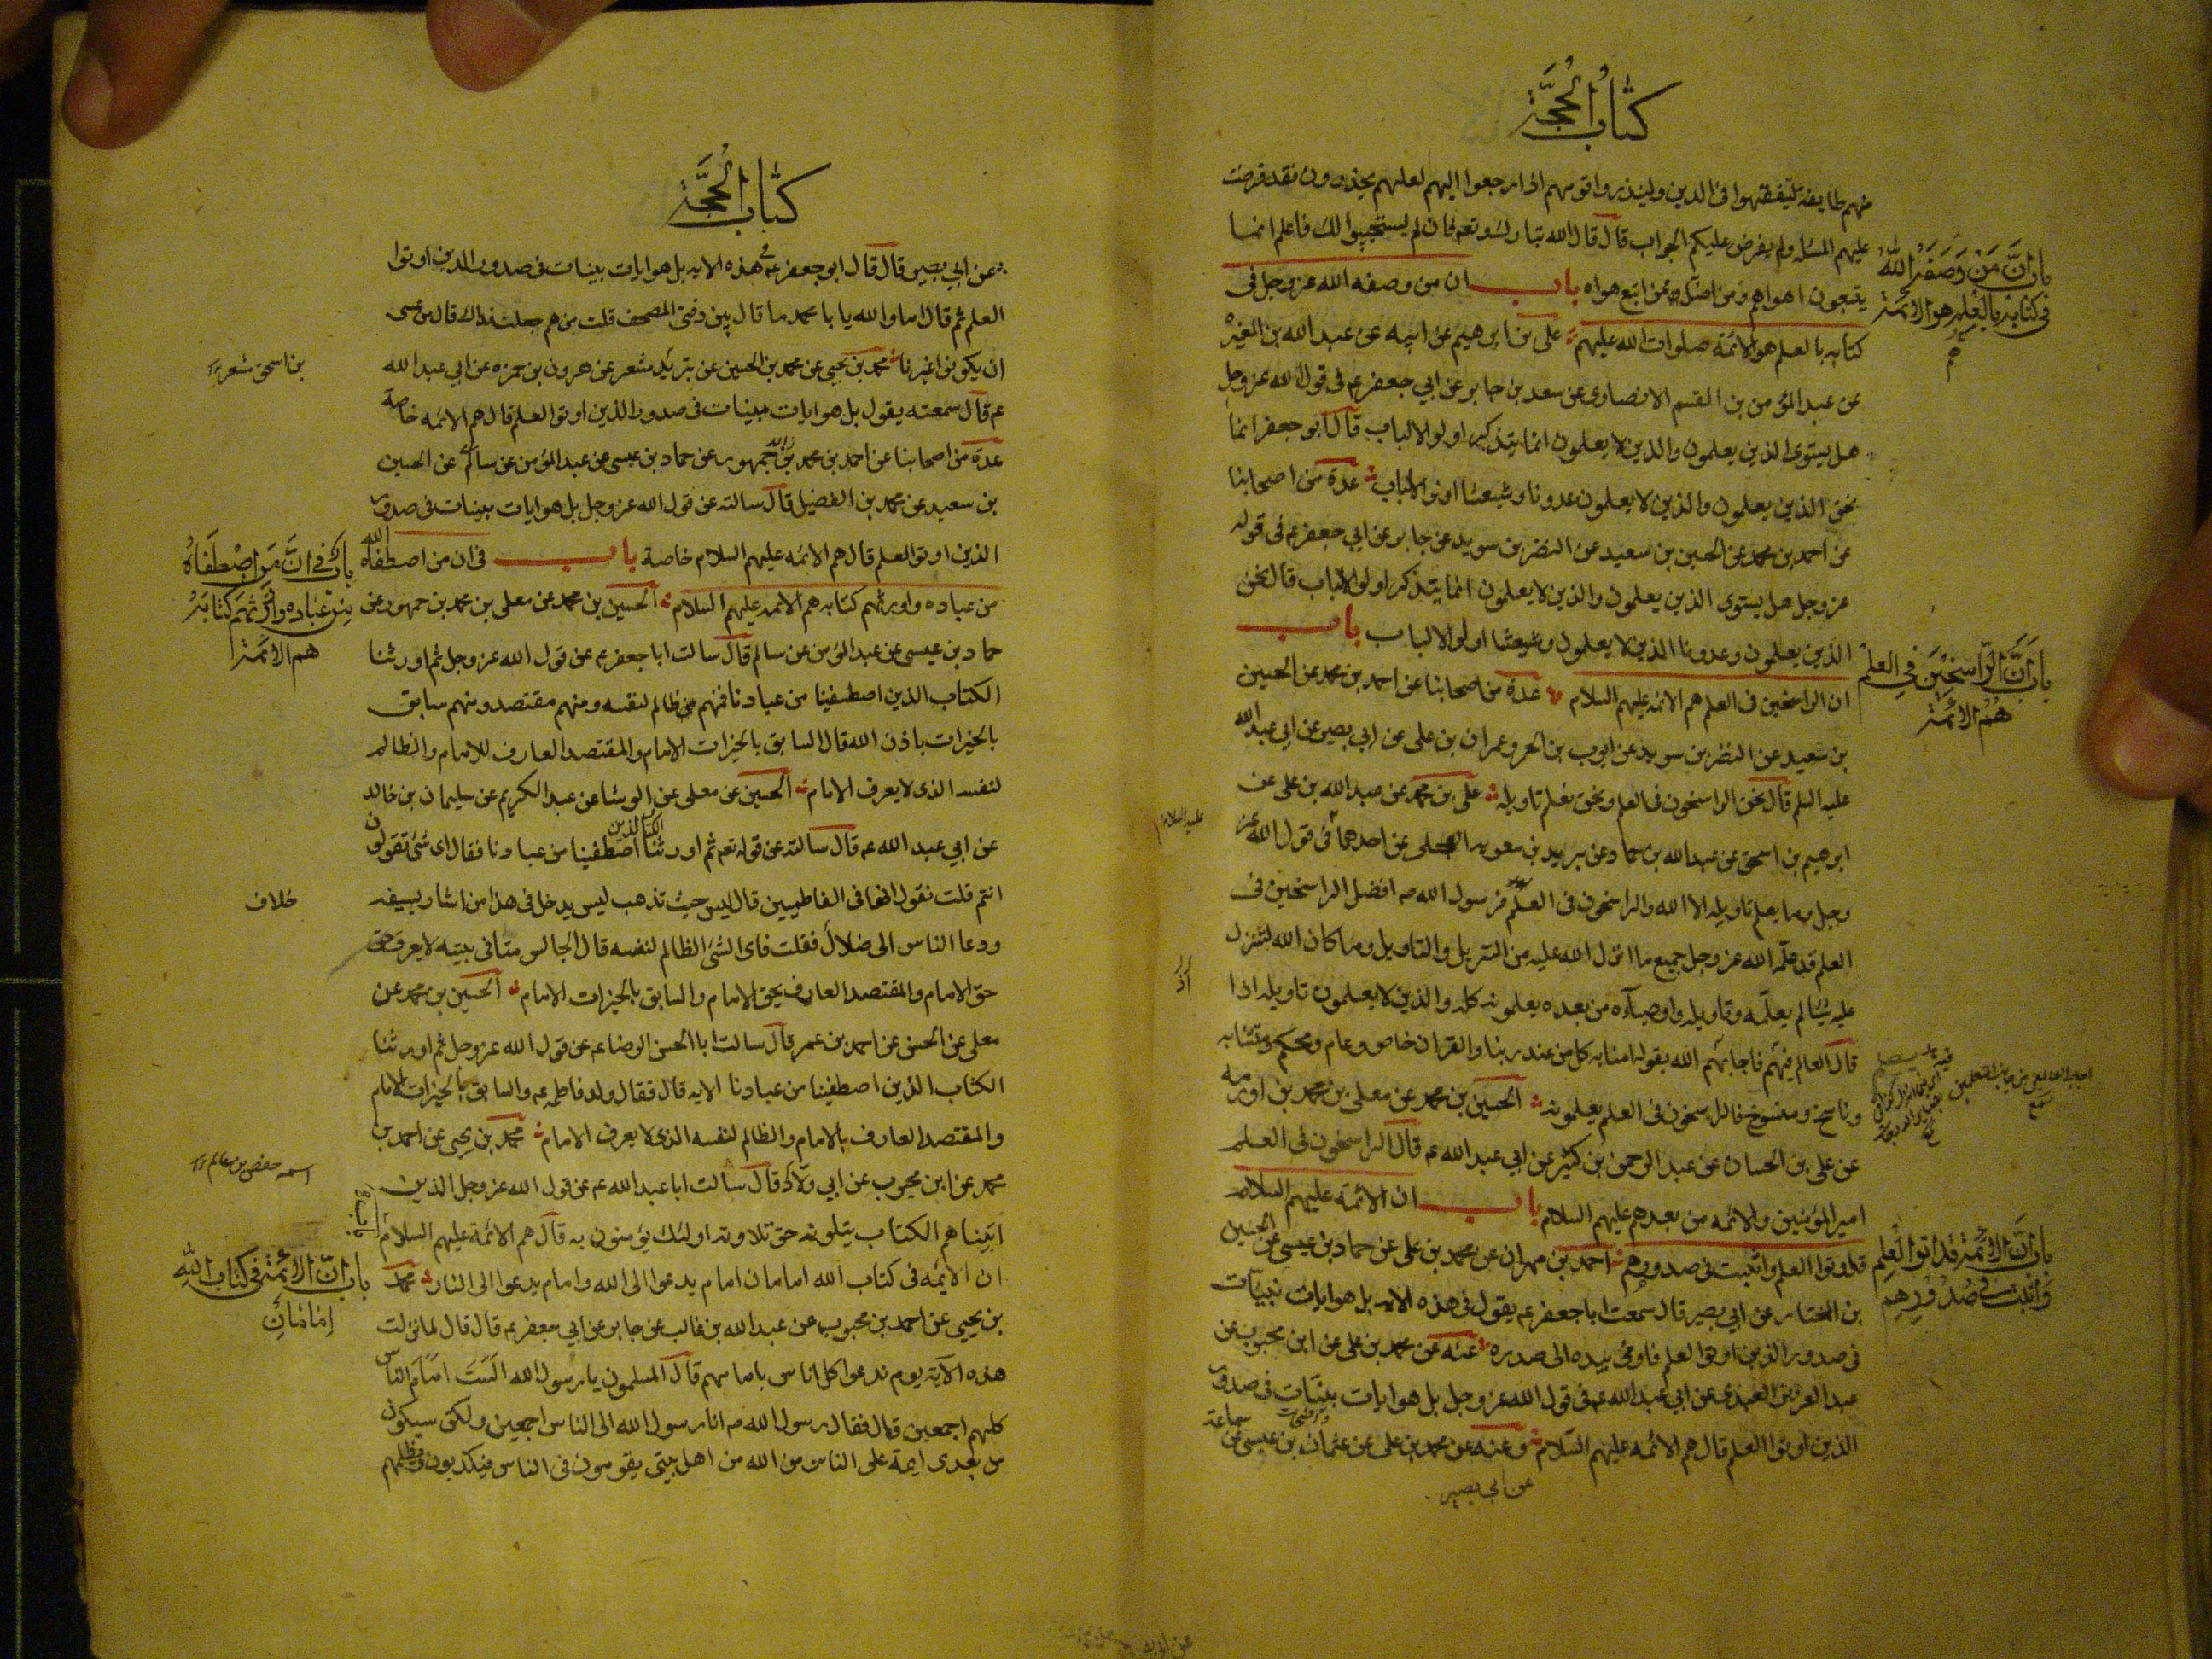 كتاب الحجة
منهم طايفة ليتفقهوا في الدين ولينذروا قومهم اذا رجعوا اليهم لعلهم يحذرون فقد فرضت
عليهم المسئلة ولم يفرض عليكم الجواب قال قال الله تبارك وتع فان لم يستجيبوا لك فاعلم انما
يتبعون اهواهم ومن اضل ممن اتبع هواه باب ان من وصفه الله عز وجل في
كتابه بالعلم هو الائمة صلوات الله عليهم علي بن ابرهيم عن ابيه عن عبد الله بن المغيره
عن عبد المؤمن بن القسم الانصاري عن سعد بن جابر عن ابي جعفر عم في قول الله عز وجل
هل يستوي الذين يعلمون والذين لا يعلمون انما يتذكر اولوا الالباب قال ابو جعفر انما
نحن الذين يعلمون والذين لا يعلمون عدونا وشيعتنا اولوا الالباب عدة من اصحابنا
عن احمد بن محمد عن الحسين بن سعيد عن النضر بن سويد عن جابر عن ابي جعفر عم في قوله
عز وجل هل يستوي الذين يعلمون والذين لا يعلمون انما يتذكر اولوا الالباب قال نحن
الذين يعلمون وعدونا الذين لا يعلمون وشيعتنا اولوا الالباب باب
ان الراسخين في العلم هم الائمة عليهم السلام عدة من اصحابنا عن احمد بن محمد عن الحسين
بن سعيد عن النضر بن سويد عن ايوب بن الحر وعمران بن علي عن ابي بصير عن ابي عبد الله
عليه السلم قال نحن الراسخون في العلم ونحن نعلم تاويله علي بن محمد عن عبد الله بن علي عن
ابرهيم بن اسحق عن عبد الله بن حماد عن بريد بن معويه العجلي عن احدهما في قول الله عز
وجل وما يعلم تاويله الا الله والراسخون في العلم فرسول الله ص افضل الراسخين في
العلم قد علمه الله عز وجل جميع ما انزل الله عليه من التنزيل والتاويل وما كان الله لينزل
عليه شيئا لم يعلمه وتاويله واوصياءه من بعده يعلمونه كله والذين لا يعلمون تاويله اذا
قال العالم فيهم فاجابهم الله يقولون امنا به كل من عند ربنا والقران خاص وعام ومحكم ومتشابه
وناسخ ومنسوخ فالراسخون في العلم يعلمونه الحسين بن محمد عن معلي بن محمد بن اورمه
عن علي بن الحسان عن عبد الرحمن بن كثير عن ابي عبد الله عم قال الراسخون في العلم
امير المؤمنين والائمة من بعدهم عليهم السلام باب ان الائمة عليهم السلام
قد اوتوا العلم واثبت في صدورهم احمد بن مهران عن محمد بن علي عن حماد بن عيسي عن الحسين
بن المختار عن ابي بصير قال سمعت ابا جعفر عم يقول في هذه الايه بل هو ايات بينات
في صدور الذين اوتوا العلم فاومي بيده الي صدره عنه عن محمد بن علي عن ابن محبوب عن
عبد العزيز العبدي عن ابي عبد الله عم في قول الله عز وجل بل هو ايات بينات في صدور
الذين اوتوا العلم قال هم الائمة عليهم السلام وعنه عن محمد بن علي عن عثمان بن عيسي عن سماعة
عن ابي بصير
باب ان من وصفه الله
في كتابه بالعلم هو الائمة
باب ان الراسخين في العلم
هم الائمة
عليه السلام
باب ان الائمة قد اتوا العلم
واثبت في صدورهم
كتاب الحجة
عن ابي بصير قال قال ابو جعفر عم في هذه الايه بل هو ايات بينات في صدور الذين اوتوا
العلم ثم قال اما والله يا با محمد ما قال بين دفتي المصحف قلت من هم جعلت فداك قال من عسي
ان يكونوا غيرنا محمد بن يحيي عن محمد بن الحسين عن يزيد شعر عن هرون بن حمزه عن ابي عبد الله
عم قال سمعته يقول بل هو ايات بينات في صدور الذين اوتوا العلم قال هم الائمه خاصة
عدة من اصحابنا عن احمد بن محمد بن جمهور عن حماد بن عيسي عن عبد المؤمن عن سالم عن الحسين
بن سعيد عن محمد بن الفضيل قال سالته عن قول الله عز وجل بل هو ايات بينات في صدور
الذين اوتوا العلم قال هم الائمه عليهم السلام خاصة باب في ان من اصطفاه الله
من عباده واورثهم كتابه هم الائمه عليهم السلام الحسين بن محمد عن معلي بن محمد بن جمهور عن
حماد بن عيسي عن عبد المؤمن عن سالم قال سالت ابا جعفر عم عن قول الله عز وجل ثم اورثنا
الكتاب الذين اصطفينا من عبادنا فمنهم ظالم لنفسه ومنهم مقتصد ومنهم سابق
بالخيرات باذن الله قال السابق بالخيرات الامام والمقتصد العارف للامام والظالم
لنفسه الذي لا يعرف الامام الحسين عن معلي عن الوشا عن عبد الكريم عن سليمان بن خالد
عن ابي عبد الله عم قال سالته عن قوله تع ثم اورثنا الكتاب الذين اصطفينا من عبادنا فقال اي شئ تقولون
انتم قلت نقول انها في الفاطميين قال ليس حيث تذهب ليس يدخل في هذا من اشار بسيفه
ودعا الناس الي ضلال فقلت فاي الشئ الظالم لنفسه قال الجالس منا في بيته لا يعرف حق
حق الامام والمقتصد العارف بحق الامام والسابق بالخيرات الامام الحسين بن محمد عن
معلي عن الحسن عن احمد بن عمر قال سالت ابا الحسن الرضا عم عن قول الله عز وجل ثم اورثنا
الكتاب الذين اصطفينا من عبادنا الايه قال فقال ولد فاطمه عم والسابق بالخيرات الامام
والمقتصد العارف بالامام والظالم لنفسه الذي لا يعرف الامام محمد بن يحيي عن احمد بن
محمد عن ابن محبوب عن ابي ولاد قال سالت ابا عبد الله عم عن قول الله عز وجل الذين
اتيناهم الكتاب يتلونه حق تلاوته اولئك يؤمنون به قال هم الائمة عليهم السلام
ان الائمه في كتاب الله امامان امام يدعوا الي الله وامام يدعوا الي النار محمد
بن يحيي عن احمد بن محبوب عن عبد الله بن غالب عن جابر عن ابي جعفر عم قال قال لما نزلت
هذه الاية يوم ندعوا كل اناس بامامهم قال المسلمون يا رسول الله الست امام الناس
كلهم اجمعين قال فقال رسول الله ص انا رسول الله الي الناس اجمعين ولكن سيكون
من بعدي ايمة علي الناس من الله من اهل بيتي يقومون في الناس فيكذبون ويظلمهم
بن اسحق شعر
باب في ان من اصطفاه
من عباده واورثهم كتابه
هم الائمة
خلاف
اسمه حفص بن سالم
باب
باب ان الائمة في كتاب الله
امامان